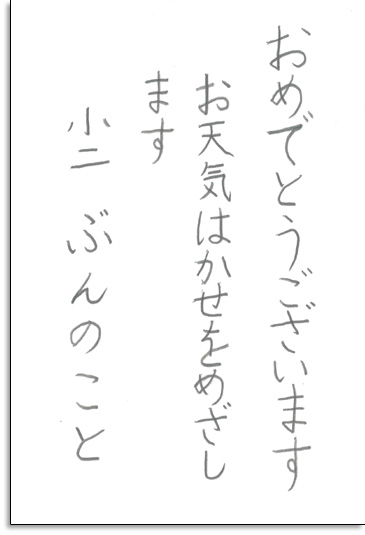 おめでとうございます
お天気はかせをめざし
ます
小二 ぶんのこと